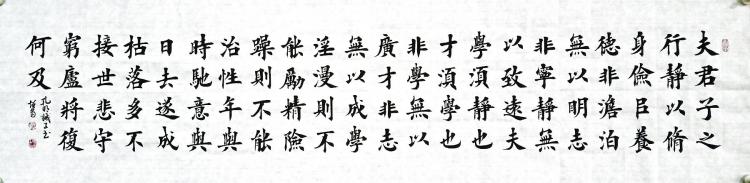 夫君子之
行靜以脩
身儉㠯養
德非澹泊
無以明志
非寧靜無
以致遠夫
學須靜也
才須學也
非學無以
廣才非志
無以成學
淫漫則不
能勵精險
躁則不能
治性年與
時馳意與
日去遂成
枯落多不
接世悲守
窮廬將復
何及
孔明誡子書